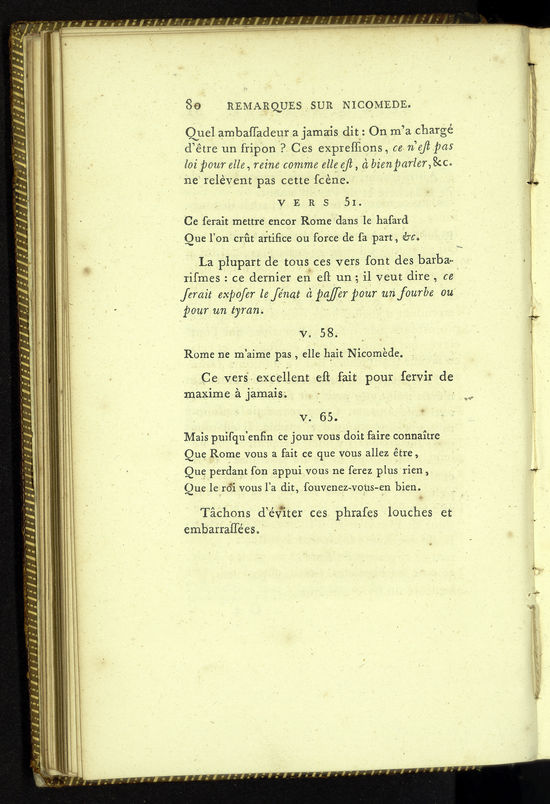 80 REMARQUES SUR NICOMEDE.
Quel ambaſſadeur a jamais dit : On m'a chargé
d'être un fripon ? Ces expreſſions, ce n'eſt pas
loi pour elle, reine comme elle eſt, à bien parler, &c.
ne relèvent pas cette ſcène.
VERS 51.
Ce ſerait mettre encor Rome dans le haſard
Que l'on crût artifice ou force de ſa part, &c.
La plupart de tous ces vers ſont des barba-
riſmes : ce dernier en eſt un ; il veut dire, ce
ſerait expoſer le ſénat à paſſer pour un fourbe ou
pour un tyran.
V. 58.
Rome ne m'aime pas, elle hait Nicomède.
Ce vers excellent eſt fait pour ſervir de
maxime à jamais.
V. 65.
Mais puiſqu'enfin ce jour vous doit faire connaître
Que Rome vous a fait ce que vous allez être,
Que perdant ſon appui vous ne ſerez plus rien,
Que le roi vous l'a dit, ſouvenez-vous-en bien.
Tâchons d'éviter ces phraſes louches et
embarraſſées.